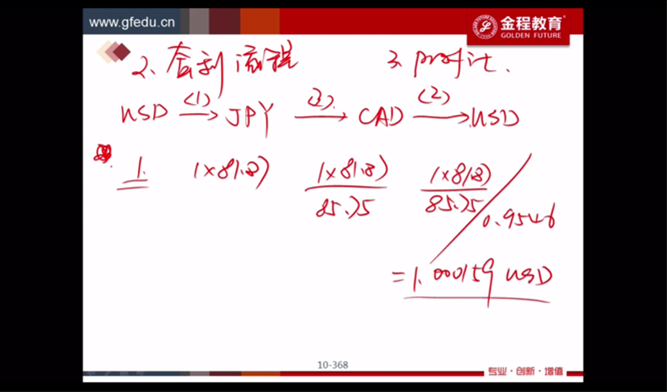 www.gfedu.cn
金程教育
GOLDEN FUTURE
2、套利流程 3. profit.
USD (1)→ JPY (3)→ CAD (2)→ USD
1. 1×81.87 1×81.87 1×81.87
85.75 85.75 / 0.9546
= 1.000159 USD
10-368
专业·创新·增值